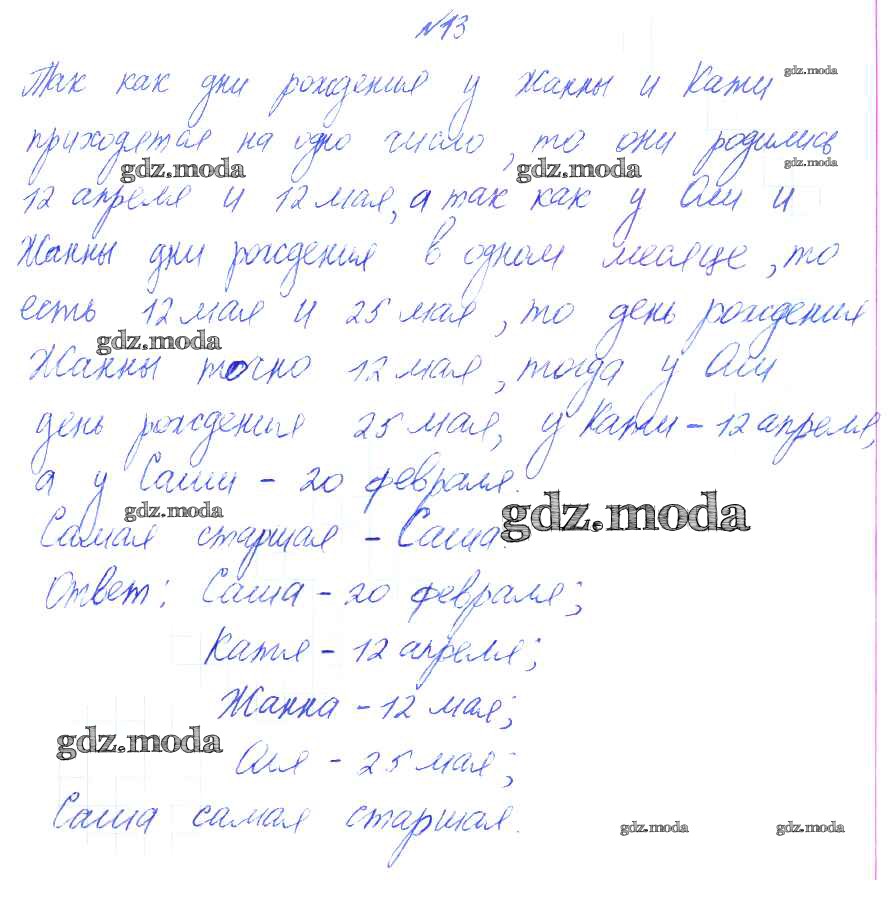 №13
Так как дни рождения у Жанны и Кати gdz.moda
приходятся на одно число, то они родились
gdz.moda gdz.moda gdz.moda
12 апреля и 12 мая, а так как у Оли и
Жанны дни рождения в одном месяце, то
есть 12 мая и 25 мая, то день рождения
gdz.moda
Жанны точно 12 мая, тогда у Оли
день рождения 25 мая, у Кати - 12 апреля,
а у Саши - 20 февраля.
gdz.moda gdz.moda
Самая старшая - Саша.
Ответ: Саша - 20 февраля;
Катя - 12 апреля;
Жанна - 12 мая;
gdz.moda
Оля - 25 мая;
Саша самая старшая.
gdz.moda gdz.moda